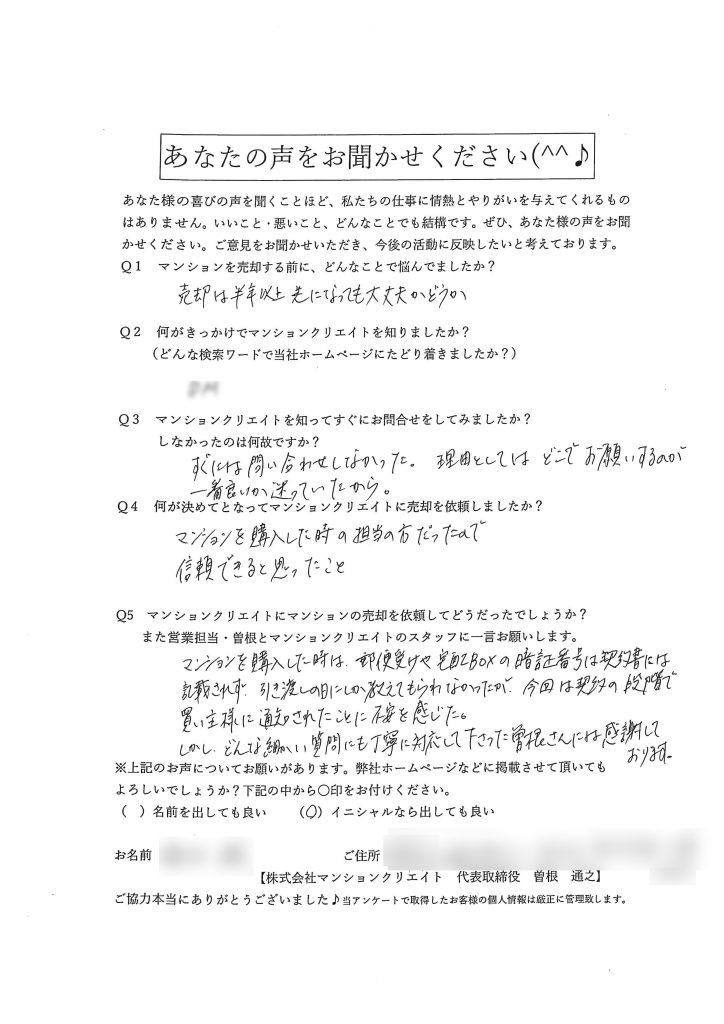 あなたの声をお聞かせください(^^♪
あなた様の喜びの声を聞くことほど、私たちの仕事に情熱とやりがいを与えてくれるもの
はありません。いいこと・悪いこと、どんなことでも結構です。ぜひ、あなた様の声をお聞
かせください。ご意見をお聞かせいただき、今後の活動に反映したいと考えております。
Q1 マンションを売却する前に、どんなことで悩んでましたか？
売却は半年以上先になっても大丈夫かどうか
Q2 何がきっかけでマンションクリエイトを知りましたか？
(どんな検索ワードで当社ホームページにたどり着きましたか？)
Q3 マンションクリエイトを知ってすぐにお問合せをしてみましたか？
しなかったのは何故ですか？
すぐには問い合わせしなかった。理由としてはどこでお願いするのが
一番良いか迷っていたから。
Q4 何が決めてとなってマンションクリエイトに売却を依頼しましたか？
マンションを購入した時の担当の方だったので
信頼できると思ったこと
Q5 マンションクリエイトにマンションの売却を依頼してどうだったでしょうか？
また営業担当・曽根とマンションクリエイトのスタッフに一言お願いします。
マンションを購入した時は、郵便受けや宅配BOXの暗証番号は契約書には
記載されず、引き渡しの日にしか教えてもらわなかったが、今回は契約の段階で
買い主様に通知されたことに不安を感じた。
しかし、どんな細かい質問にも丁寧に対応して下さった曽根さんには感謝して
おります。
※上記のお声についてお願いがあります。弊社ホームページなどに掲載させて頂いても
よろしいでしょうか？下記の中から○印をお付けください。
( )名前を出しても良い (○)イニシャルなら出しても良い
お名前 ご住所
【株式会社マンションクリエイト 代表取締役 曽根 通之】
ご協力本当にありがとうございました♪当アンケートで取得したお客様の個人情報は厳正に管理致します。